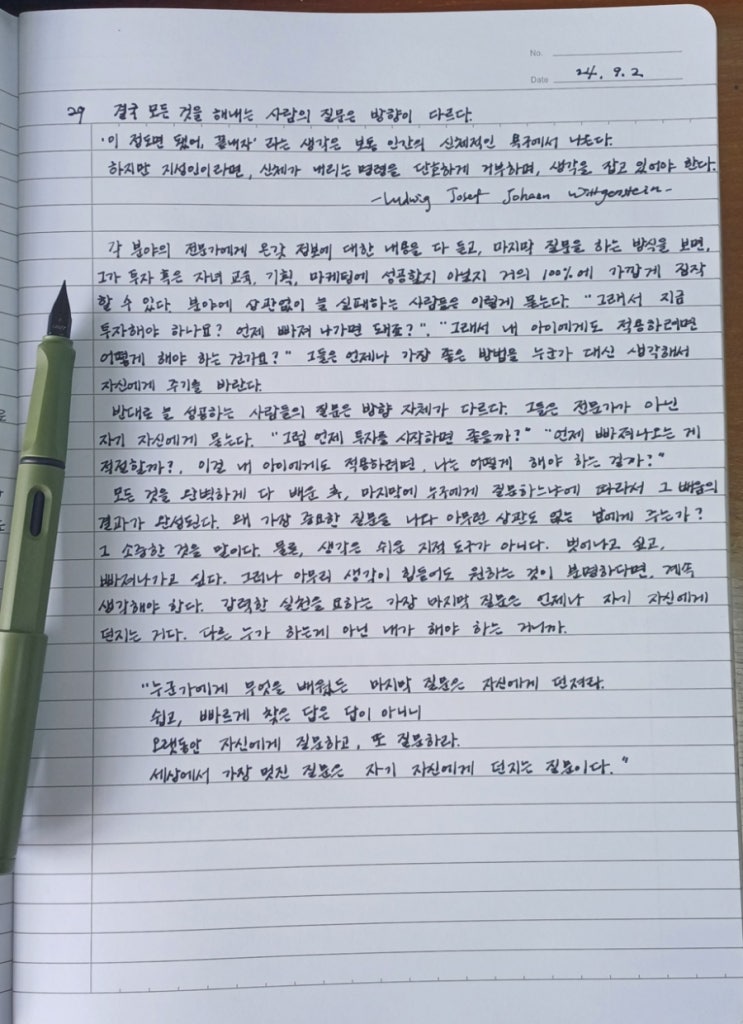 No.
Date 24. 9. 2
29 결국 모든 것을 해내는 사람의 질문은 방향이 다르다.
'이 정도면 됐어, 끝내자' 라는 생각은 보통 인간의 신체적인 욕구에서 나온다.
하지만 지성인이라면, 신체가 내리는 명령을 단호하게 거부하며, 생각을 잡고 있어야 한다.
-Ludwig Josef Johann Wittgenstein-
각 분야의 전문가에게 온갖 정보에 대한 내용을 다 듣고, 마지막 질문을 하는 방식을 보면,
그가 투자 혹은 자녀 교육, 기획, 마케팅에 성공할지 아닐지 거의 100%에 가깝게 짐작
할 수 있다. 분야에 상관없이 늘 실패하는 사람들은 이렇게 묻는다. "그래서 지금
투자해야 하나요? 언제 빠져 나가면 돼죠?". "그래서 내 아이에게도 적용하려면
어떻게 해야 하는 건가요?" 그들은 언제나 가장 좋은 방법을 누군가 대신 생각해서
자신에게 주기를 바란다.
반대로 늘 성공하는 사람들의 질문은 방향 자체가 다르다. 그들은 전문가가 아닌
자기 자신에게 묻는다. "그럼 언제 투자를 시작하면 좋을까?" "언제 빠져나오는 게
적절할까?, 이걸 내 아이에게도 적용하려면, 나는 어떻게 해야 하는 걸까?"
모든 것을 완벽하게 다 배운 후, 마지막에 누구에게 질문하느냐에 따라서 그 배움의
결과가 완성된다. 왜 가장 중요한 질문을 나와 아무런 상관도 없는 남에게 주는가?
그 소중한 것을 말이다. 물론, 생각은 쉬운 지적 도구가 아니다. 벗어나고 싶고,
빠져나가고 싶다. 그러나 아무리 생각이 힘들어도 원하는 것이 분명하다면, 계속
생각해야 한다. 강력한 실천을 요하는 가장 마지막 질문은 언제나 자기 자신에게
던지는 거다. 다른 누가 하는게 아닌 내가 해야 하는 거니까.
"누군가에게 무엇을 배웠든 마지막 질문은 자신에게 던져라.
쉽고, 빠르게 찾은 답은 답이 아니니
오랫동안 자신에게 질문하고, 또 질문하라.
세상에서 가장 멋진 질문은 자기 자신에게 던지는 질문이다."